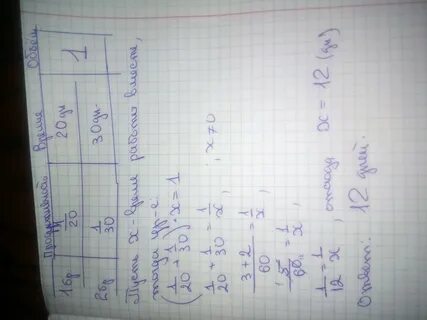 Продуктивность Время Объём
1 бр 1/20 20 дн 1
2 бр 1/30 30 дн
Пусть x - время работы вместе,
тогда ур-е:
(1/20 + 1/30) · x = 1
1/20 + 1/30 = 1/x, ; x ≠ 0
3+2/60 = 1/x,
5/60 = 1/x,
1/12 = 1/x, откуда x = 12 (дн)
Ответ: 12 дней.